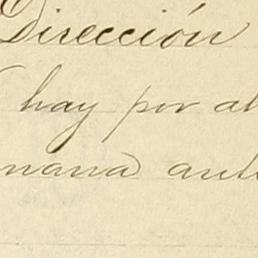 Dirección
hay por al
nana ant